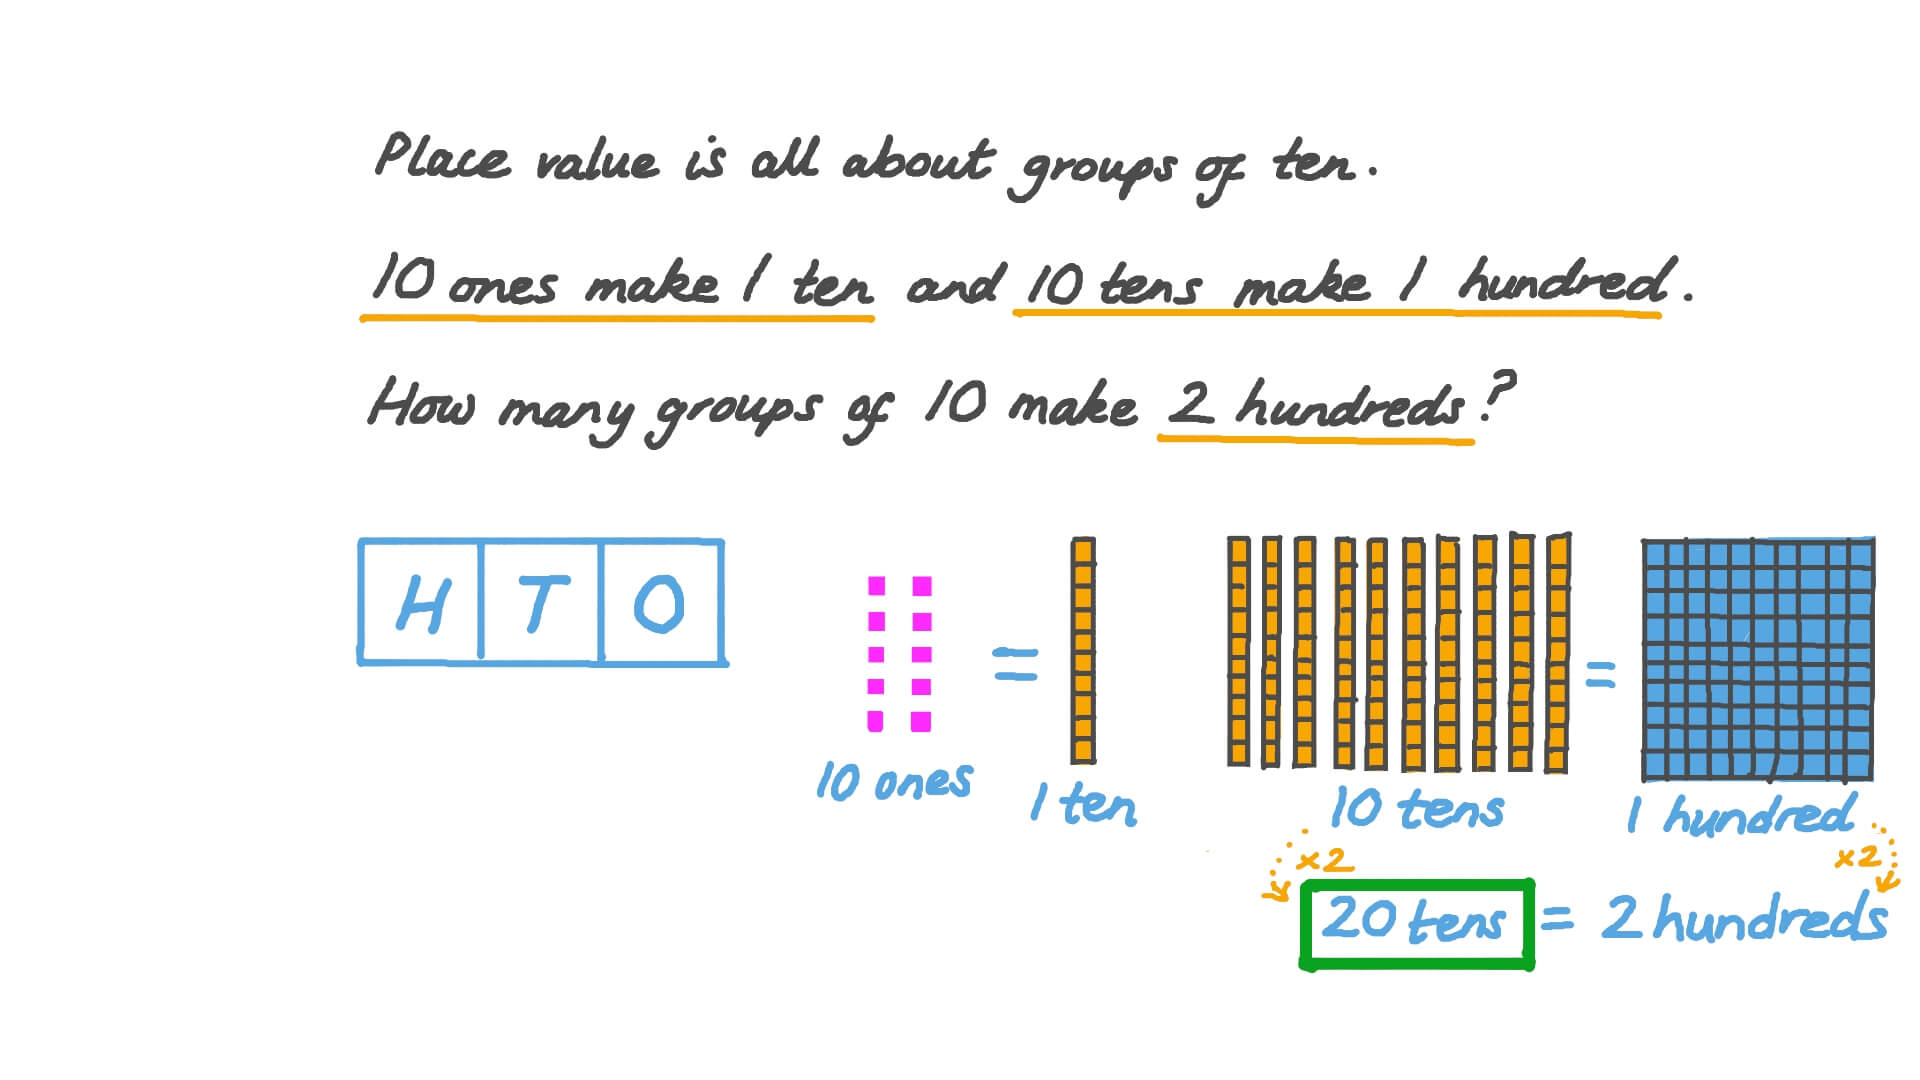 Place value is all about groups of ten.
10 ones make 1 ten and 10 tens make 1 hundred.
How many groups of 10 make 2 hundreds?
H T O
=
=
10 ones
1 ten
10 tens
1 hundred
×2
×2
20 tens = 2 hundreds